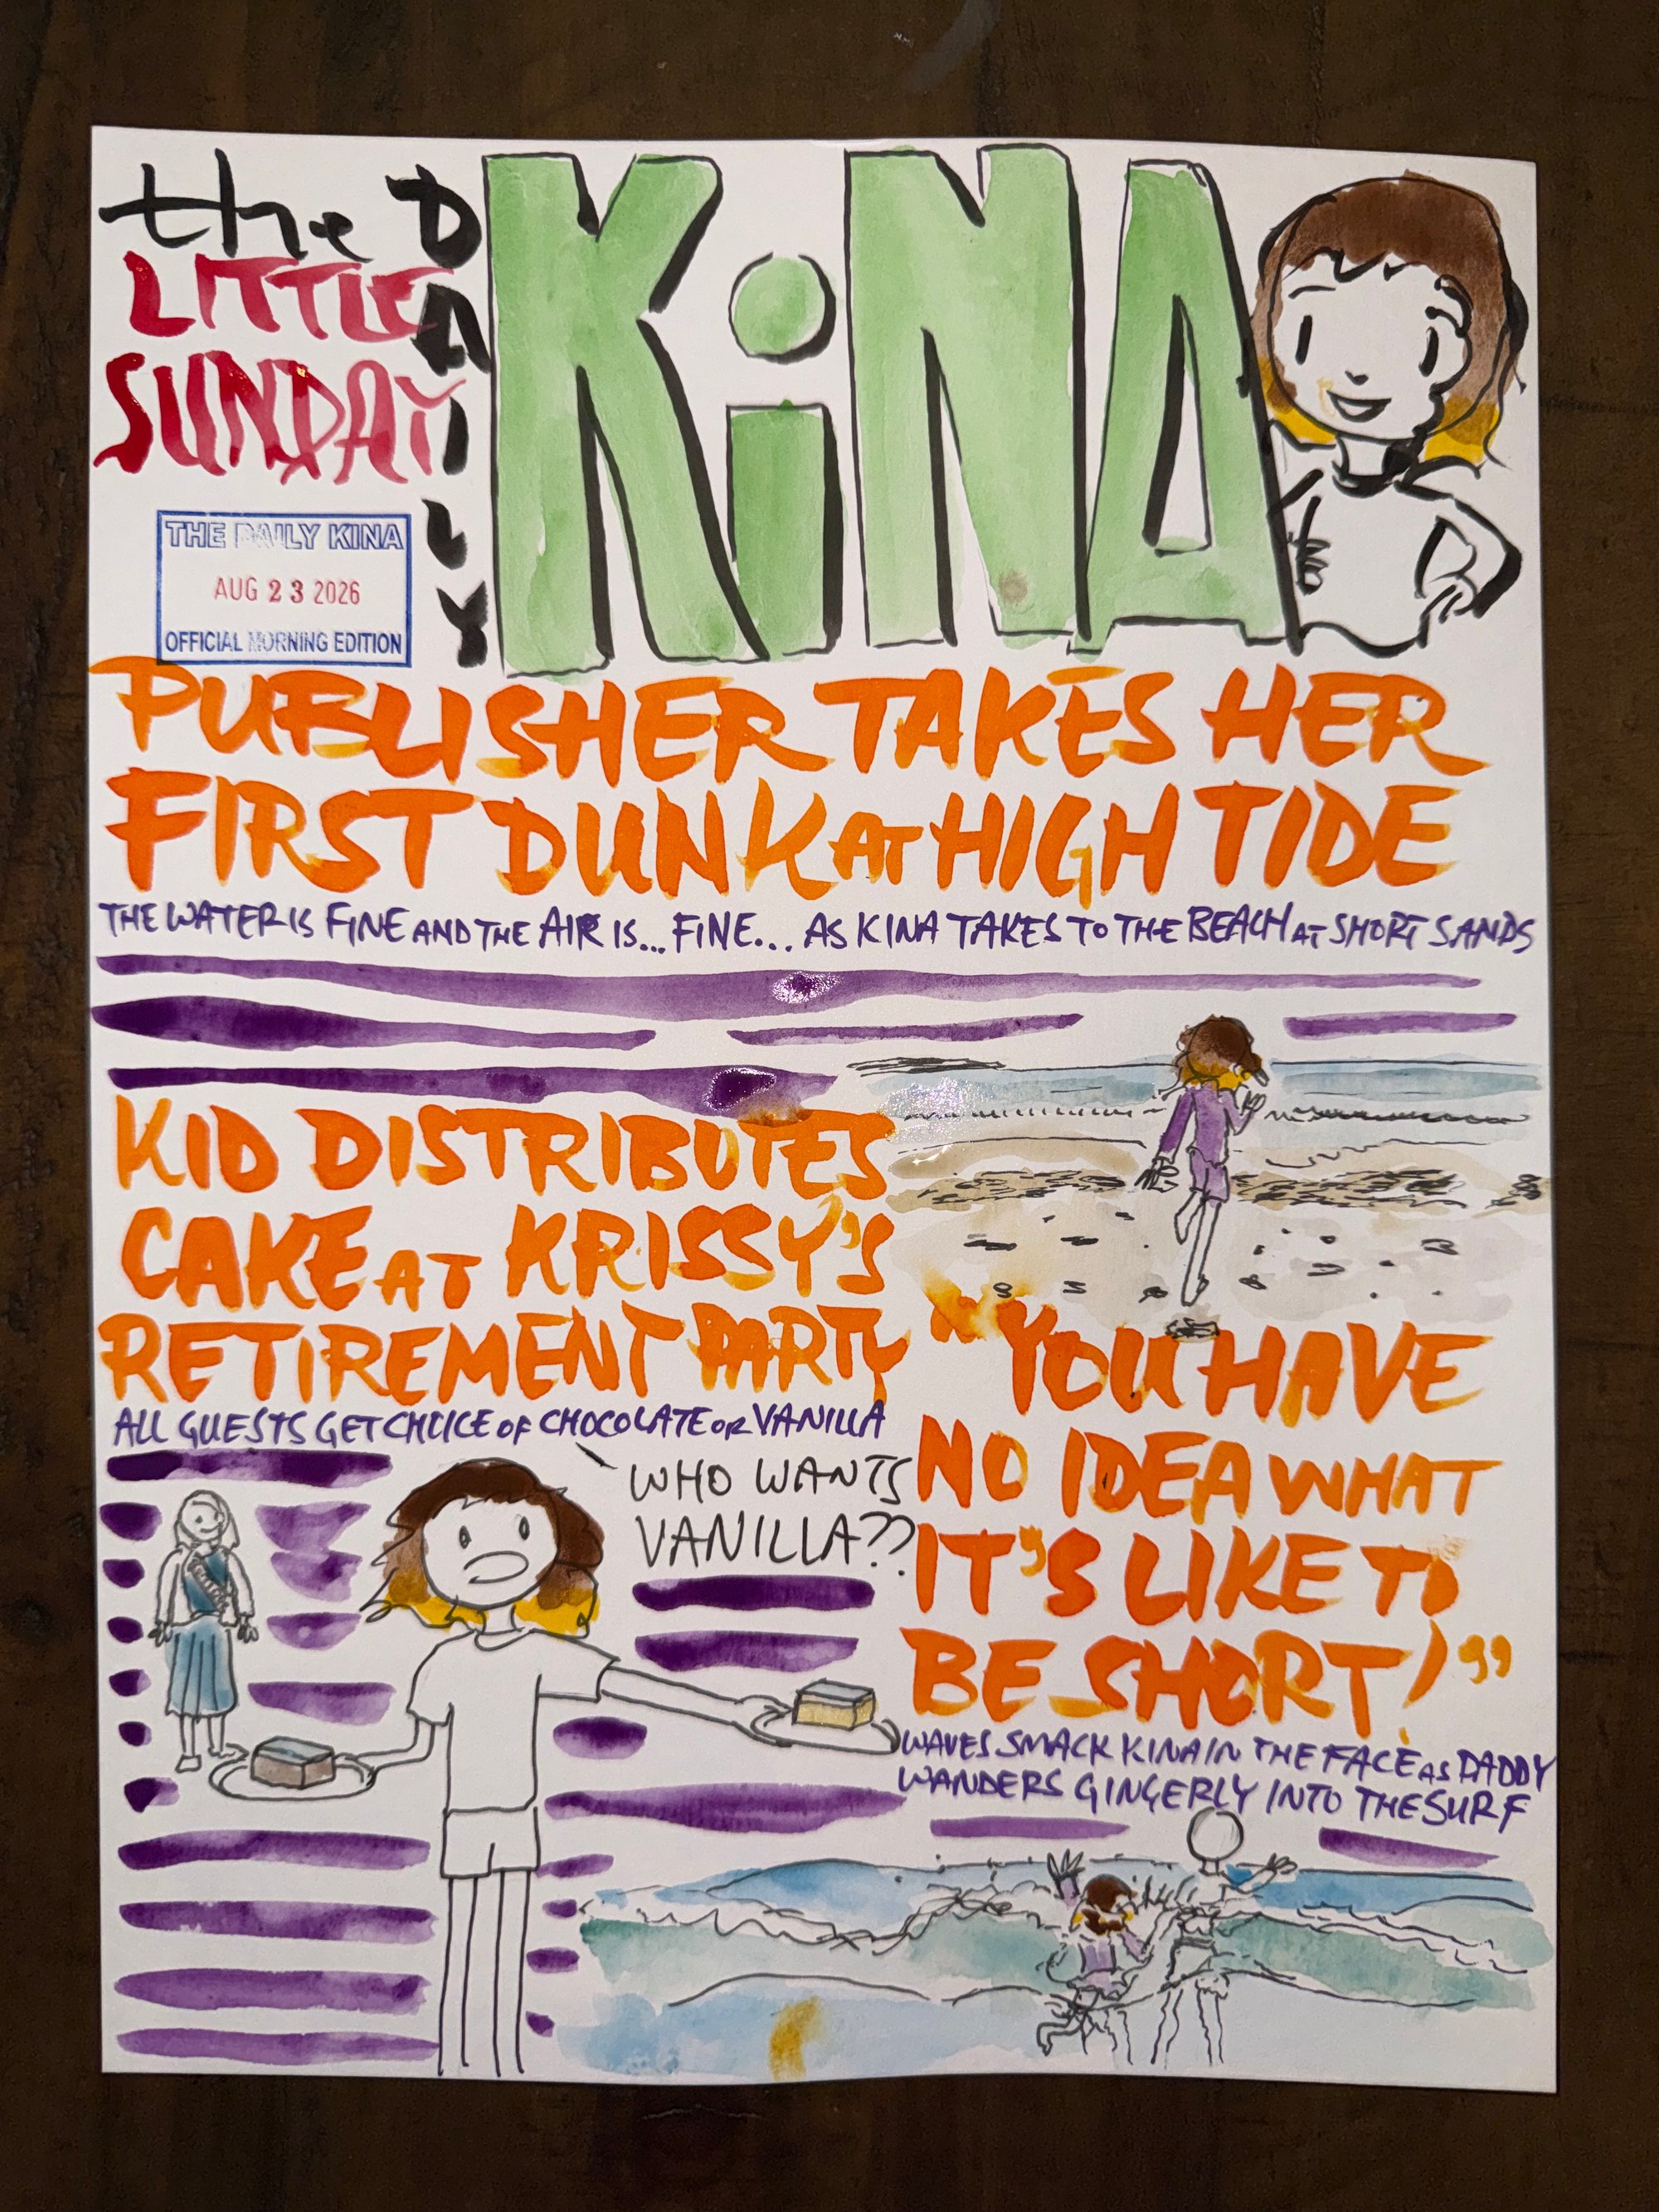 the DAILY KiNA
LITTLE
SUNDAY
THE DAILY KINA
AUG 23 2026
OFFICIAL MORNING EDITION
PUBLISHER TAKES HER
FIRST DUNK AT HIGH TIDE
THE WATER IS FINE AND THE AIR IS... FINE... AS KINA TAKES TO THE BEACH AT SHORT SANDS
KID DISTRIBUTES
CAKE AT KRISSY'S
RETIREMENT PARTY
ALL GUESTS GET CHOICE OF CHOCOLATE OR VANILLA
WHO WANTS
VANILLA??
"YOU HAVE
NO IDEA WHAT
IT'S LIKE TO
BE SHORT!"
WAVES SMACK KINA IN THE FACE AS DADDY
WANDERS GINGERLY INTO THE SURF